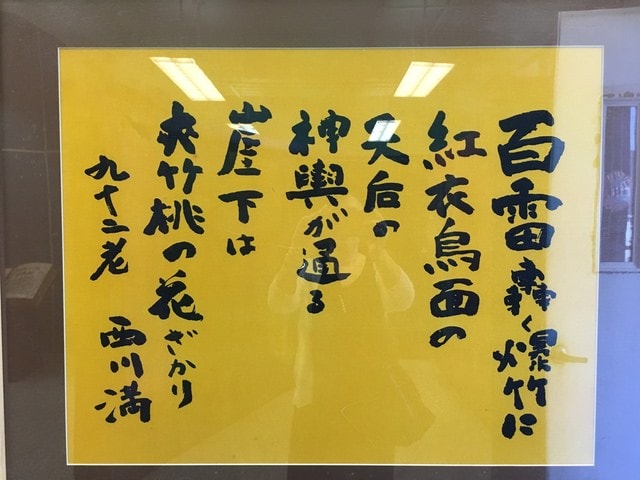 百雷轟く爆竹に
紅衣烏面の
天后の
神輿が通る
崖下は
夾竹桃の花ざかり
九十二老 西川満